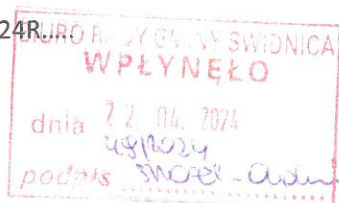 24R.....
BIURO RADY GMINY ŚWIDNICA
WPŁYNĘŁO
dnia 22 04. 2024
podpis